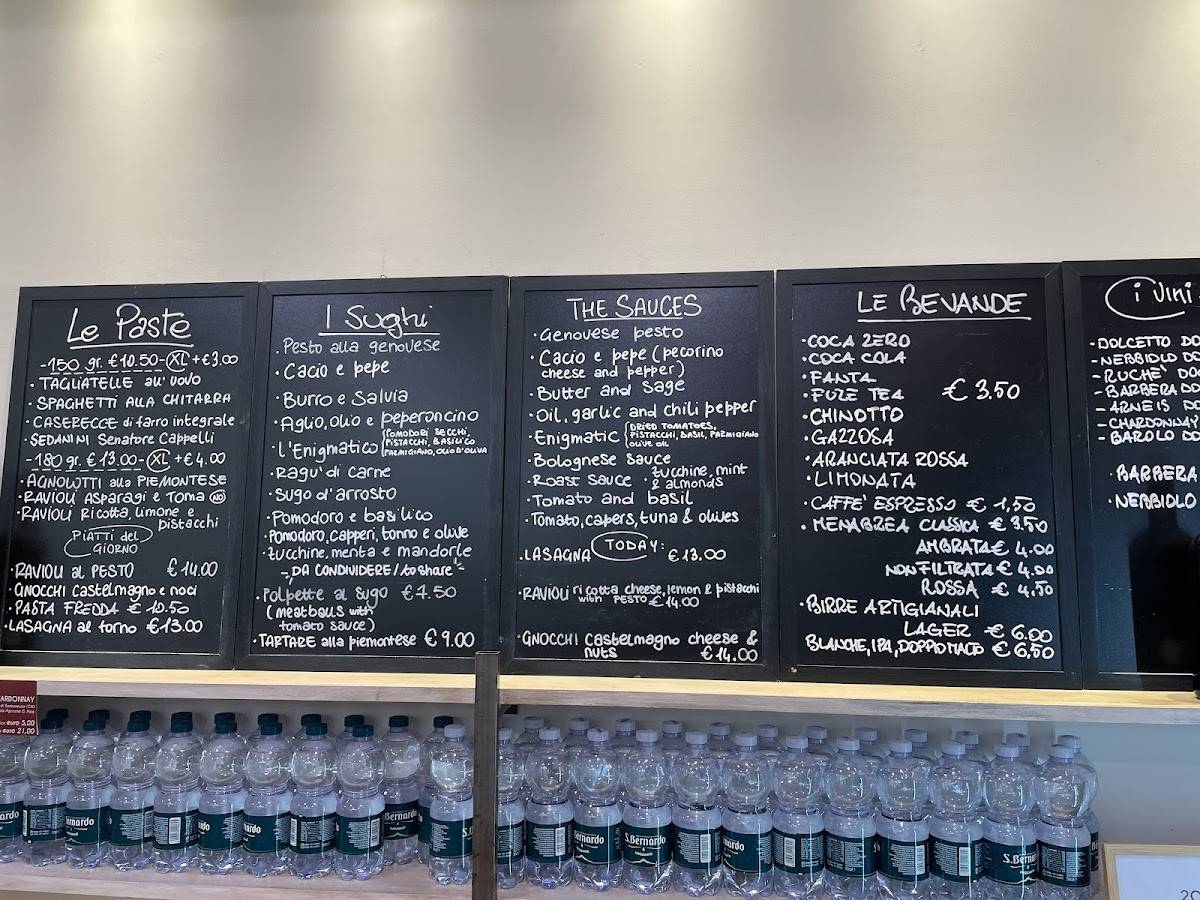 Le Paste
-150 gr. €10.50-(XL)+€3.00
• TAGLIATELLE all'UOVO
• SPAGHETTI ALLA CHITARRA
• CASERECCE di farro integrale
• SEDANINI Senatore Cappelli
-180 gr. €13.00-(XL)+€4.00
• AGNOLOTTI alla PIEMONTESE
• RAVIOLI Asparagi e Toma NO
• RAVIOLI Ricotta, limone e
pistacchi
PIATTI del
GIORNO
• RAVIOLI al PESTO €14.00
GNOCCHI Castelmagno e noci
• PASTA FREDDA €10.50
• LASAGNA al forno €13.00
I Sughi
• Pesto alla genovese
• Cacio e pepe
• Burro e Salvia
• Aglio, olio e peperoncino
• L'Enigmatico (POMODORI SECCHI,
PISTACCHI, BASILICO
PARMIGIANO, OLIO D'OLIVA
• Ragu' di carne
• Sugo d'arrosto
• Pomodoro e basilico
• Pomodoro, capperi, tonno e olive
• Zucchine, menta e mandorle
- DA CONDIVIDERE / to share -
• Polpette al sugo €7.50
(meatballs with
tomato sauce)
• TARTARE alla piemontese €9.00
THE SAUCES
• Genovese pesto
• Cacio e pepe (pecorino
cheese and pepper)
• Butter and Sage
• Oil, garlic and chili pepper
• Enigmatic (DRIED TOMATOES,
PISTACCHI, BASIL, PARMIGIANO
olive oil
• Bolognese sauce
• Roast sauce • Zucchine, mint
& almonds
• Tomato and basil
• Tomato, capers, tuna & olives
TODAY:
• LASAGNA €13.00
• RAVIOLI ricotta cheese, lemon & pistacchi
with PESTO €14.00
• GNOCCHI Castelmagno cheese &
nuts €14.00
LE BEVANDE
• COCA ZERO
• COCA COLA
• FANTA
• FUZE TEA €3.50
• CHINOTTO
• GAZZOSA
• ARANCIATA ROSSA
• LIMONATA
• CAFFE' ESPRESSO €1,50
• MENABREA CLASSICA €3.50
AMBRATA €4.00
NON FILTRATA €4.00
ROSSA €4.50
• BIRRE ARTIGIANALI
LAGER €6.00
BLANCHE, IPA, DOPPIO MALTO €6,50
i Vini
• DOLCETTO DO
- NEBBIOLO DO
- RUCHE' DOC
- BARBERA DE
- ARNEIS DO
- CHARDONNAY
- BAROLO DO
• BARBERA
• NEBBIOLO
ARDONNAY
euro 5,00
euro 21,00
S.Bernardo